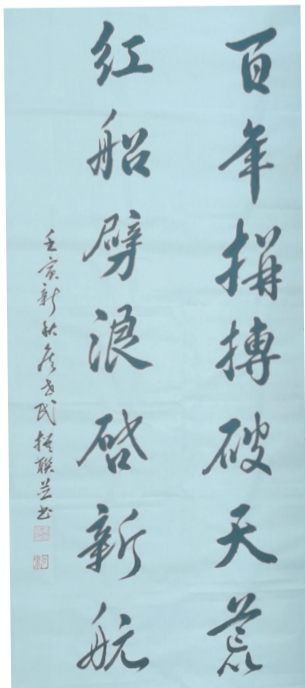 百年拼搏破天荒
红船劈浪启新航
壬寅新秋 民撰联并书